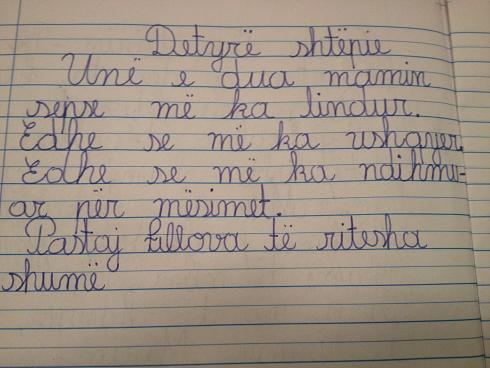 Detyrë shtëpie
Unë e dua mamin
sepse më ka lindur.
Edhe se më ka ushqyer.
Edhe se më ka ndihmu-
ar për mësimet.
Pastaj fillova të rritesha
shumë